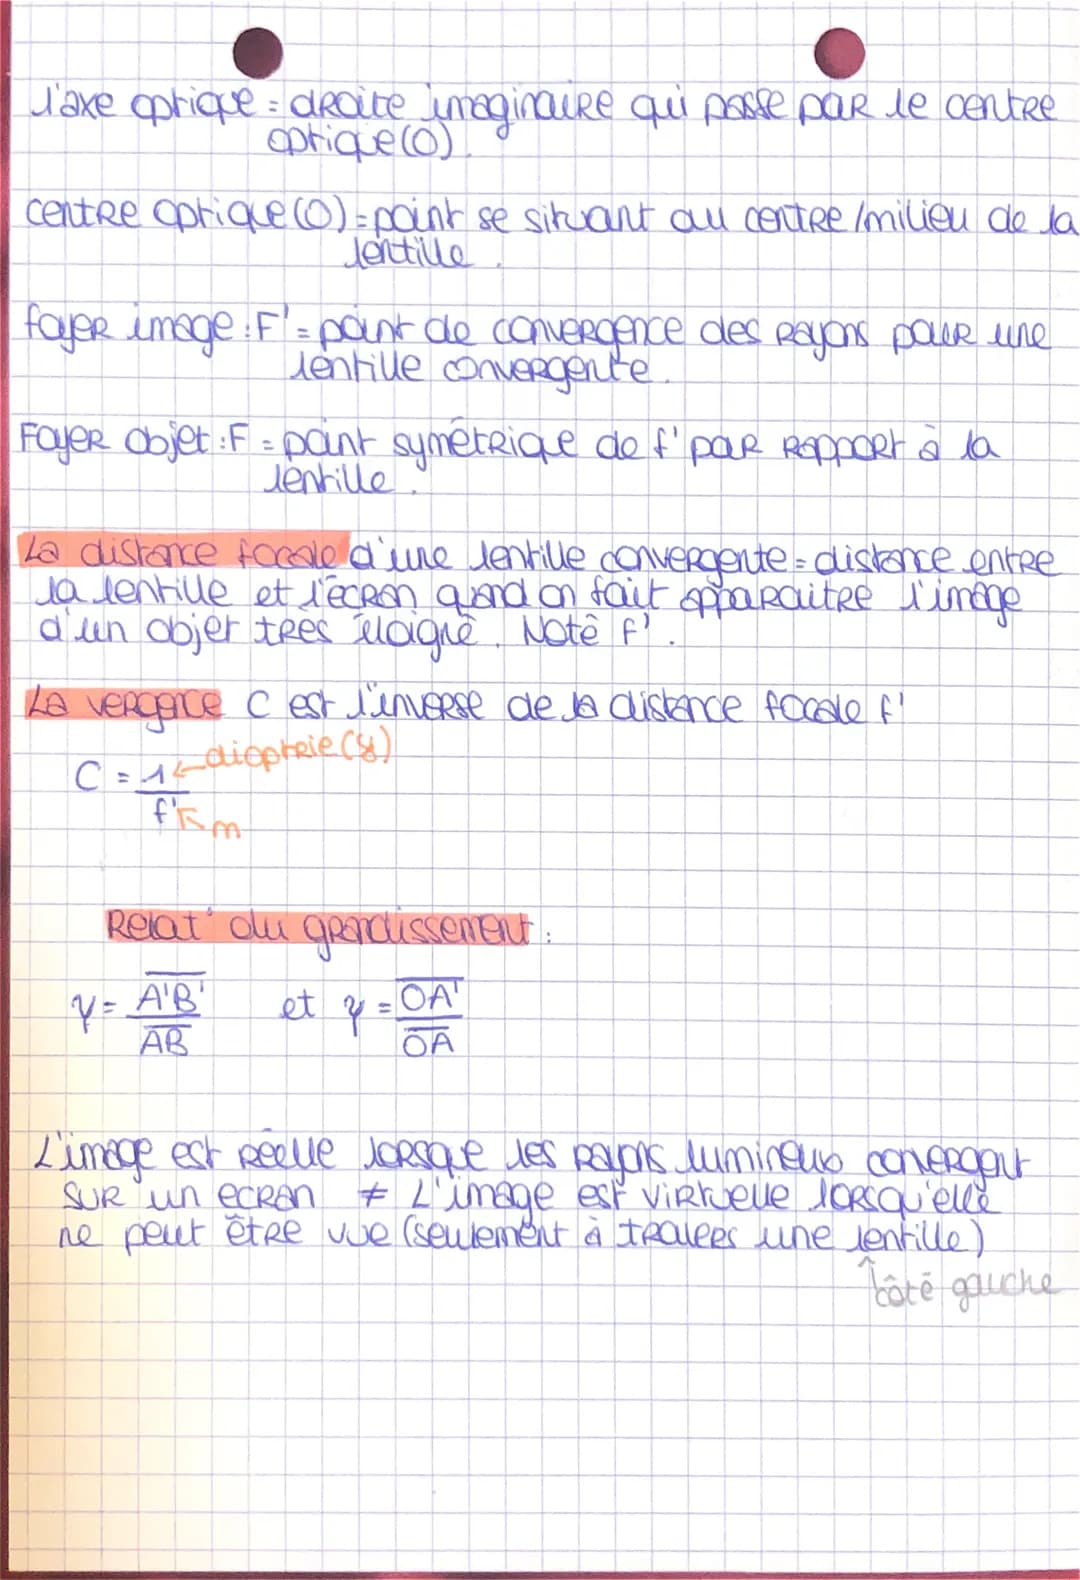 l'axe optique = droite imaginaire qui passe par le centre
optique (O).
centre optique (O) = point se situant au centre/milieu de la
lentille.
foyer image : F' = point de convergence des rayons pour une
lentille convergente.
Foyer objet : F = point symétrique de f' par rapport à la
lentille.
La distance focale d'une lentille convergente = distance entre
la lentille et l'écran quand on fait apparaitre l'image
d'un objet très éloigné. Noté f'.
La vergence C est l'inverse de la distance focale f'
C = 1 ← dioptrie (δ)
f' ↖ m
Relat° du grandissement :
γ = A'B' et γ = OA'
AB OA
L'image est réelle lorsque les rayons lumineux convergent
sur un ecran ≠ L'image est virtuelle lorsqu'elle
ne peut être vue (seulement à travers une lentille)
↑ côté gauche